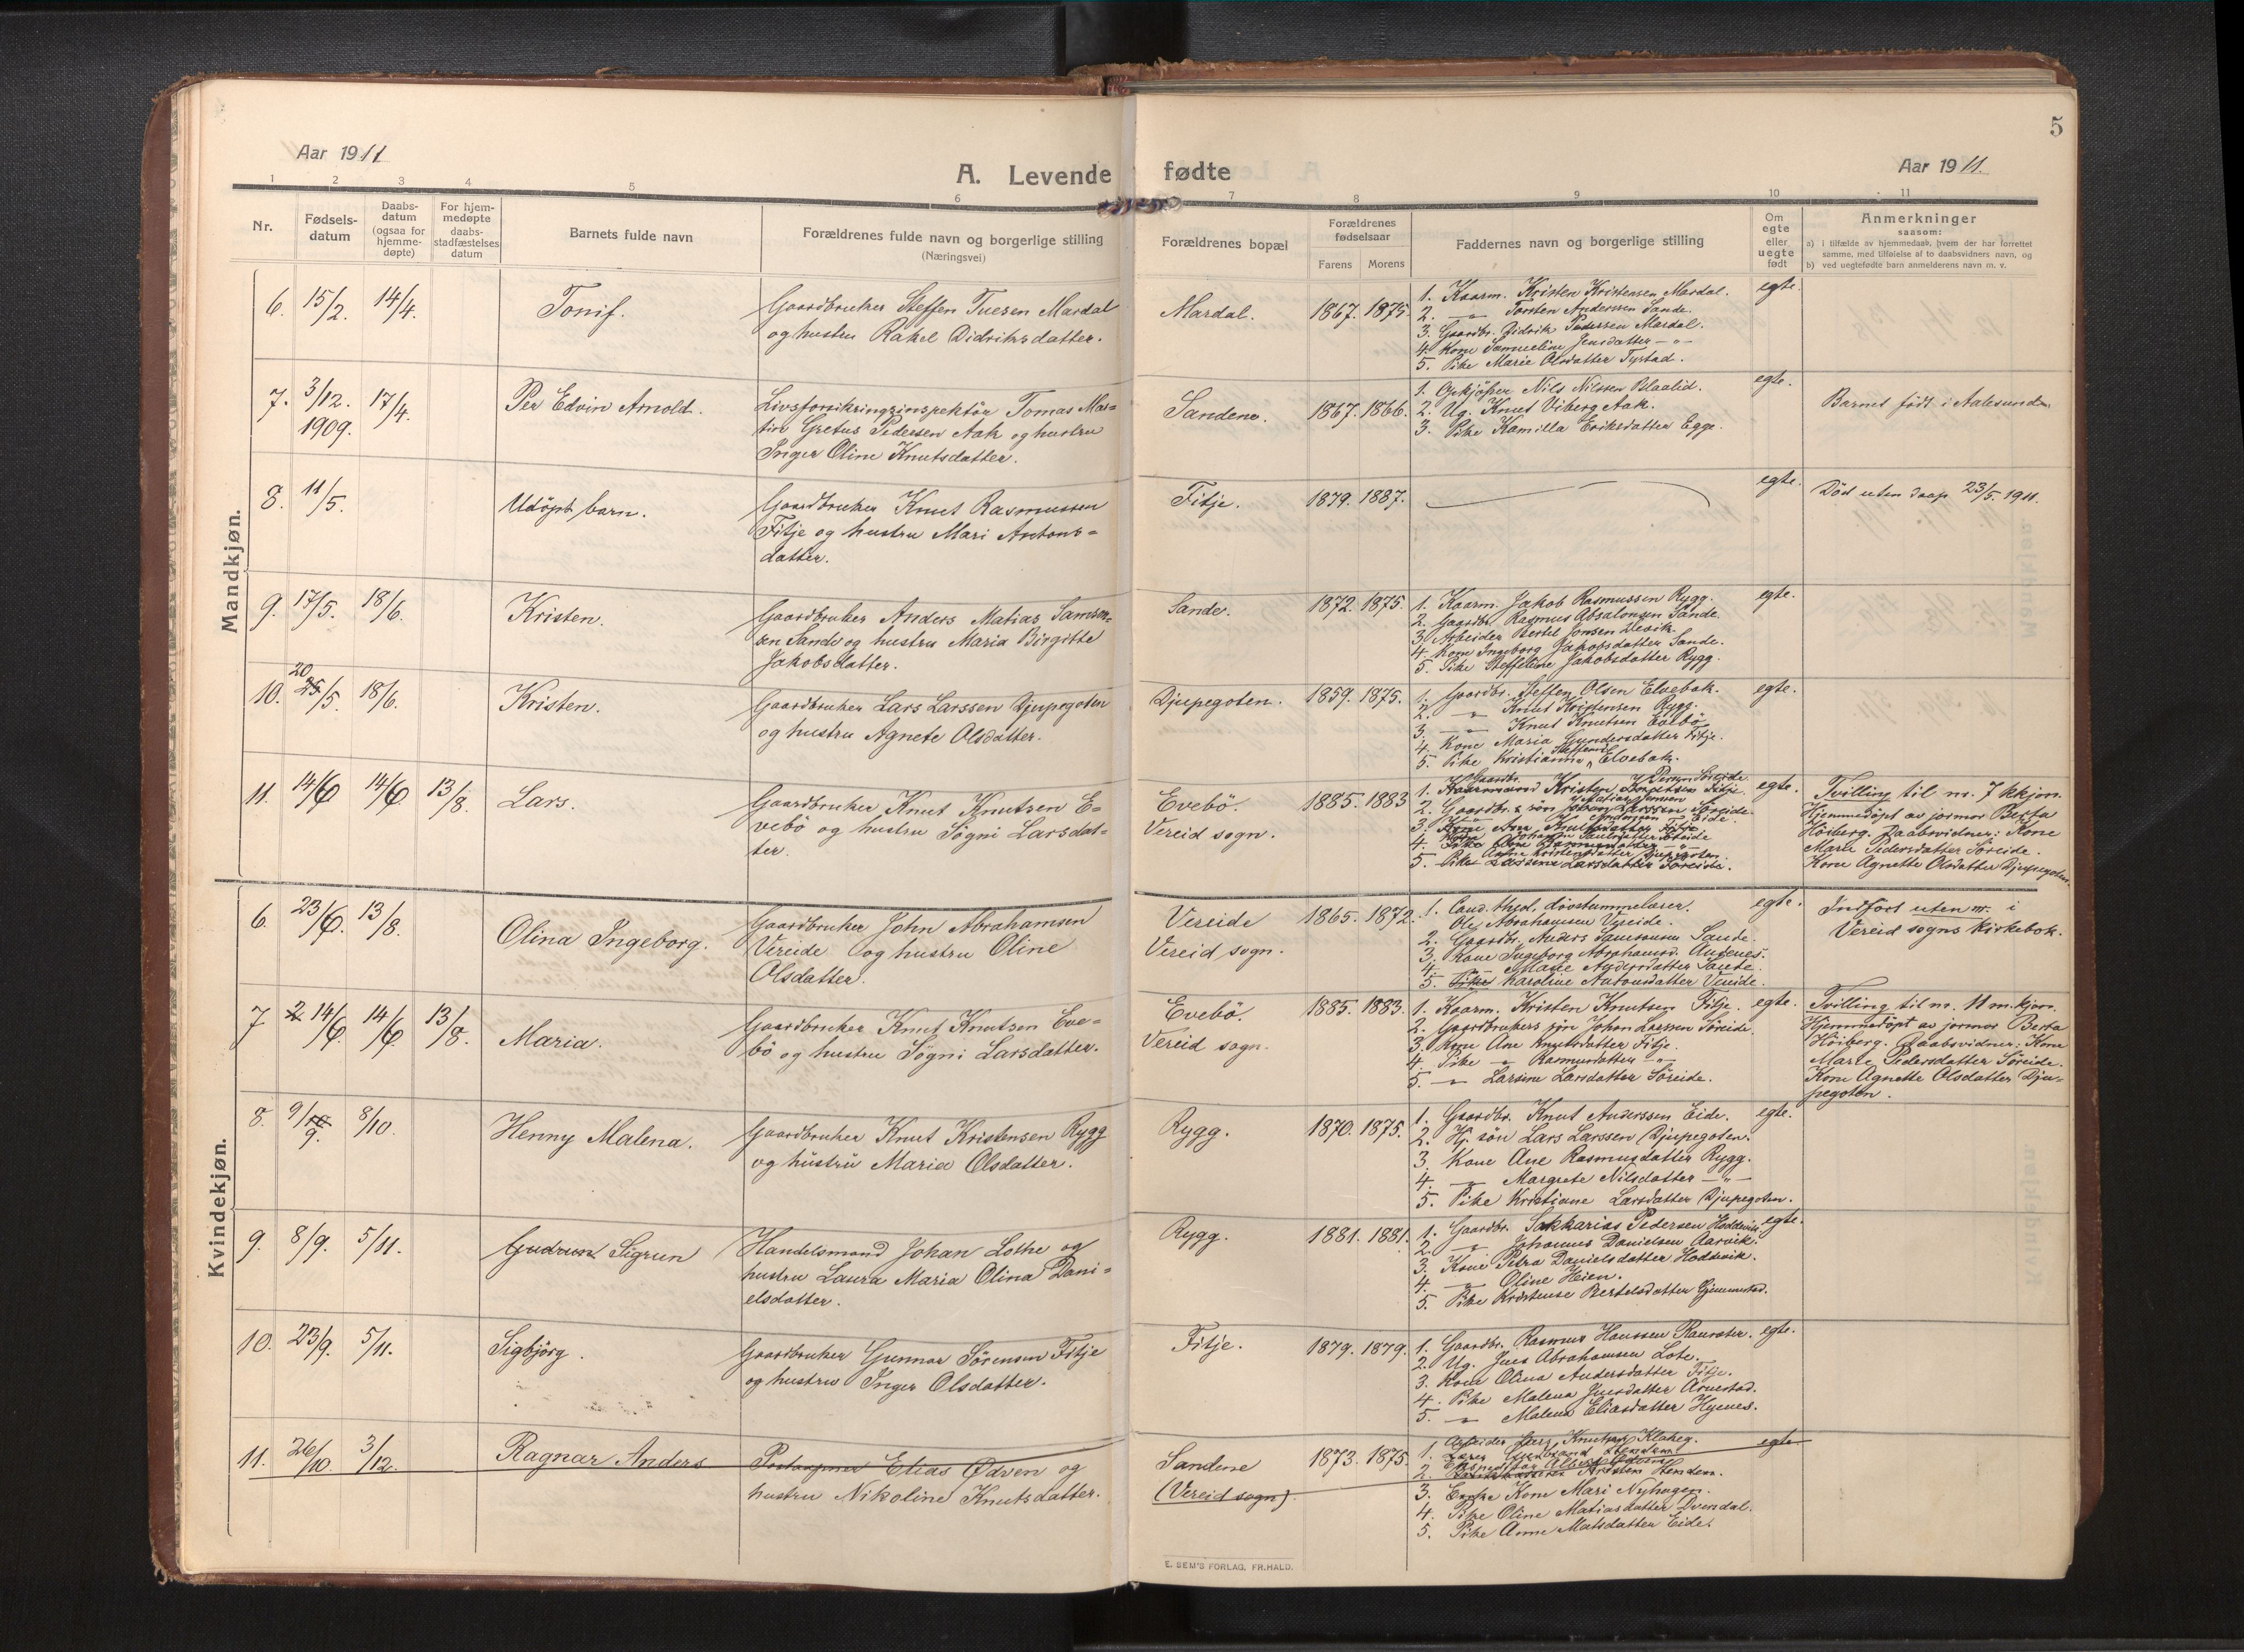 Aar 1911
A. Levende fødte
Aar 1911.
5
1 2 3 4 5 6 7 8 9 10 11
Nr.
Fødsels-
datum
Daabs-
datum
(ogsaa for
hjemme-
døpte)
For hjem-
medøpte
daabs-
stadfæstelses
datum
Barnets fulde navn
Forældrenes fulde navn og borgerlige stilling
(Næringsvei)
Forældrenes bopæl
Forældrenes
fødselsaar
Farens Morens
Faddernes navn og borgerlige stilling
Om
egte
eller
uegte
født
Anmerkninger
saasom:
a) i tilfælde av hjemmedaab, hvem der har forrettet
samme, med tilføielse af to daabsvidners navn, og
b) ved uegtefødte barn anmelderens navn m. v.
Mandkjøn.
6. 15/2. 14/4. Tonif.
Gaardbruker Steffen Tuesen Mardal
og hustru Rakel Didriksdatter.
Mardal. 1867. 1875.
1. Kaarm. Kristen Kristensen Mardal.
2. — " — Torsten Anderssen Sande.
3. Gaardbr. Didrik Pedersen Mardal.
4. Kone Samueline Jensdatter — " —
5. Pike Marie Olsdatter Tystad.
egte.
7. 3/12. 1909. 17/4. Per Edvin Arnold.
Livsforsikringsinspektör Tomas Mar-
tin Gretus Pedersen Aak og hustru
Inger Oline Knutsdatter.
Sandene. 1867. 1866.
1. Opkjöper Nils Nilssen Blaalid.
2. Ug. Knut Viberg Aak.
3. Pike Kamilla Eriksdatter Egge.
egte.
Barnet födt i Aalesund.
8. 11/5. Udöpt barn.
Gaardbruker Knut Rasmussen
Fitje og hustru Mari Antons-
datter.
Fitje. 1879. 1887.
egte.
Död uten daap 23/5. 1911.
9. 17/5. 18/6. Kristen.
Gaardbruker Anders Matias Samson-
sen Sande og hustru Maria Birgitte
Jakobsdatter.
Sande. 1872. 1875.
1. Kaarm. Jakob Rasmussen Rygg.
2. Gaardbr. Rasmus Absalonsen Sande.
3. Arbeider Bertel Jonsen Devik.
4. Kone Ingeborg Jakobsdatter Sande.
5. Pike Steffeline Jakobsdatter Rygg.
egte.
10. 20 25/5. 18/6. Kristen.
Gaardbruker Lars Larssen Djupegoten
og hustru Agnete Olsdatter.
Djupegoten. 1859. 1875.
1. Gaardbr. Steffen Olsen Elvebak.
2. — " — Knut Kristensen Rygg.
3. — " — Knut Knutsen Evebö.
4. Kone Maria Gundersdatter Fitje.
5. Pike Kristianna Steffensd. Elvebak.
egte.
11. 14/6 14/6 13/8. Lars.
Gaardbruker Knut Knutsen E-
vebö og hustru Sögni Larsdat-
ter.
Evebö.
Vereid sogn.
1885. 1883
1. Kaarmand Kristen Knutsen Fitje.
2. Gaardbr.s sön Johan Larssen Söreide.
3. Kone Ane Knutsdatter Fitje
4. Pike Ane Rasmusdatter — " —
5. Pike Larsine Larsdatter Söreide.
egte.
Tvilling til nr. 7 kkjøn.
Hjemmedöpt av jormor Berta
Höiberg. Daabsvidner: Kone
Marie Pedersdatter Söreide.
Kone Agnette Olsdatter Djupegoten.
Kvindekjøn.
6. 23/6. 13/8. Olina Ingeborg.
Gaardbruker John Abrahamsen
Vereide og hustru Oline
Olsdatter.
Vereide
Vereid sogn.
1865. 1872.
1. Cand. theol. dövstummelærer.
Ole Abrahamsen Vereide.
2. Gaardbr. Anders Samsonsen Sande.
3. Kone Ingeborg Abrahamsd. Austnes.
4. — " — Marie Andersdatter Sande.
5. Pike Karoline Antonsdatter Vereide.
egte.
Indfört uten nr. i
Vereid sogns kirkebok.
7 2 14/6. 14/6. 13/8. Maria.
Gaardbruker Knut Knutsen Eve-
bö og hustru Sögni Larsdatter.
Evebö.
Vereid sogn.
1885. 1883.
1. Kaarm. Kristen Knutsen Fitje.
2. Gaardbrukers sön Johan Larssen Söreide.
3. Kone Ane Knutsdatter Fitje.
4. Pike — " — Rasmusdatter — " —
5. — " — Larsine Larsdatter Söreide.
egte.
Tvilling til nr. 11 m.kjøn.
Hjemmedöpt av jormor Berta
Höiberg. Daabsvidner: Kone
Marie Pedersdatter Söreide.
Kone Agnette Olsdatter Dju-
pegoten.
8. 9/10 9. 8/10. Henny Malena.
Gaardbruker Knut Kristensen Rygg
og hustru Maria Olsdatter.
Rygg. 1870. 1875.
1. Gaardbr. Knut Anderssen Eide.
2. Hj. sön Lars Larssen Djupegoten.
3. Kone Ane Rasmusdatter Rygg.
4. — " — Margrete Nilsdatter — " —
5. Pike Kristiane Larsdatter Djupegoten.
egte.
9. 8/9. 5/11. Gudrun Sigrun
Handelsmand Johan Lothe og
hustru Laura Maria Olina Dani-
elsdatter.
Rygg. 1881. 1881.
1. Gaardbr. Sakkarias Pedersen Hoddevik.
2. — " — Johannes Danielsen Aarvik.
3. Kone Petra Danielsdatter Hoddevik.
4. — " — Oline Heien.
5. Pike Kristense Bertelsdatter Gjemmestad.
egte.
10. 23/9. 5/11. Sigbjörg.
Gaardbruker Gunnar Sörensen Fitje
og hustru Inger Olsdatter.
Fitje. 1879. 1879.
1. Gaardbr. Rasmus Hanssen Rauset.
2. Ug. Jens Abrahamsen Lote.
3. Kone Olina Andersdatter Fitje.
4. Pike Malena Jensdatter Arnestad.
5. — " — Malena Eliasdatter Hjenes.
egte.
11. 26/10. 3/12. Ragnar Anders
Postaapner Elias Ødven og
hustru Nikoline Knutsdatter.
Sandene
(Vereid sogn).
1873. 1875.
1. Arbeider Knutsen Klakeg.
2. Kristen Hendem.
3. Enke Kone Mari Nyhagen.
4. Pike Oline Matiasdatter Dvendal.
5. Pike Anne Matsdatter Eide.
egte
E. SEM'S FORLAG, FR.HALD.